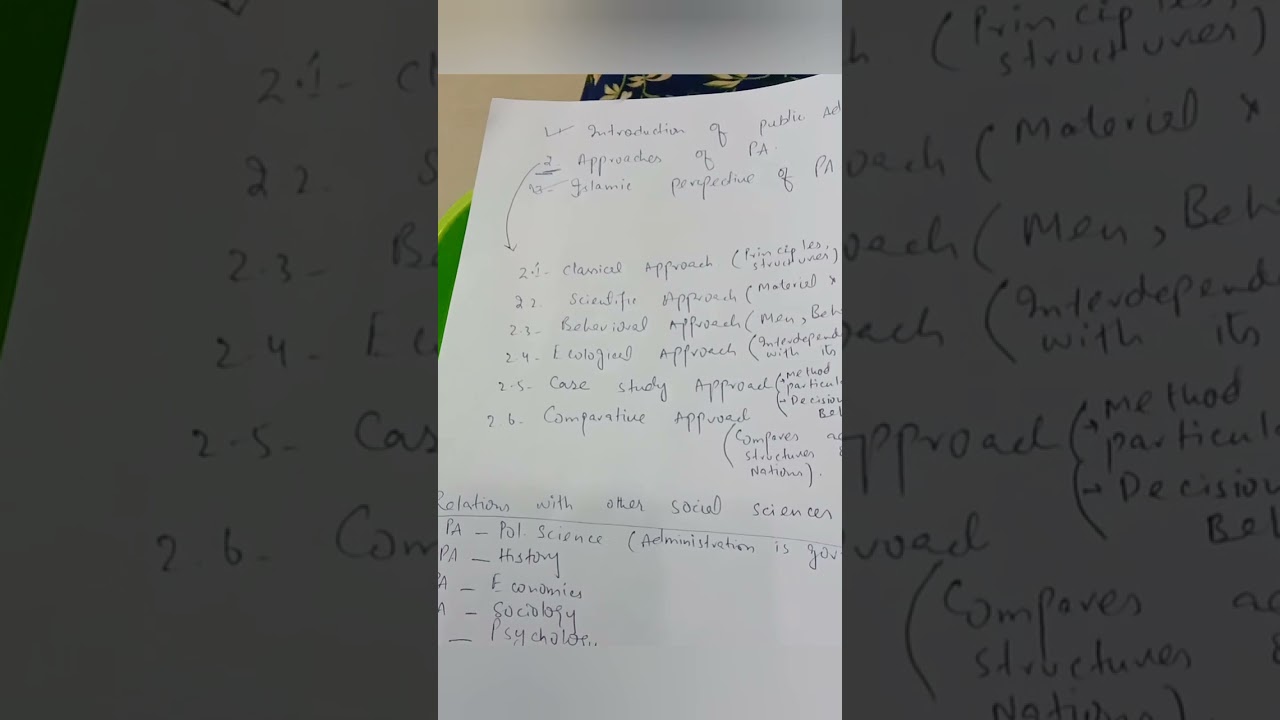 1 Introduction of public Ad
2 Approaches of PA.
3- Islamic perspective of PA
2.1- Classical Approach (Principles, structures)
2.2. Scientific Approach (Material x
2.3- Behavioral Approach (Men, Beh
2.4- Ecological Approach (Interdepend with its
2.5- Case study Approach (→ Method particula
→ Decision Beh
2.6- Comparative Approach
(Compares ad
structures &
Nations).
Relations with other social sciences
PA - Pol. Science (Administration is gov
PA - History
PA - Economics
A - Sociology
- Psycholo